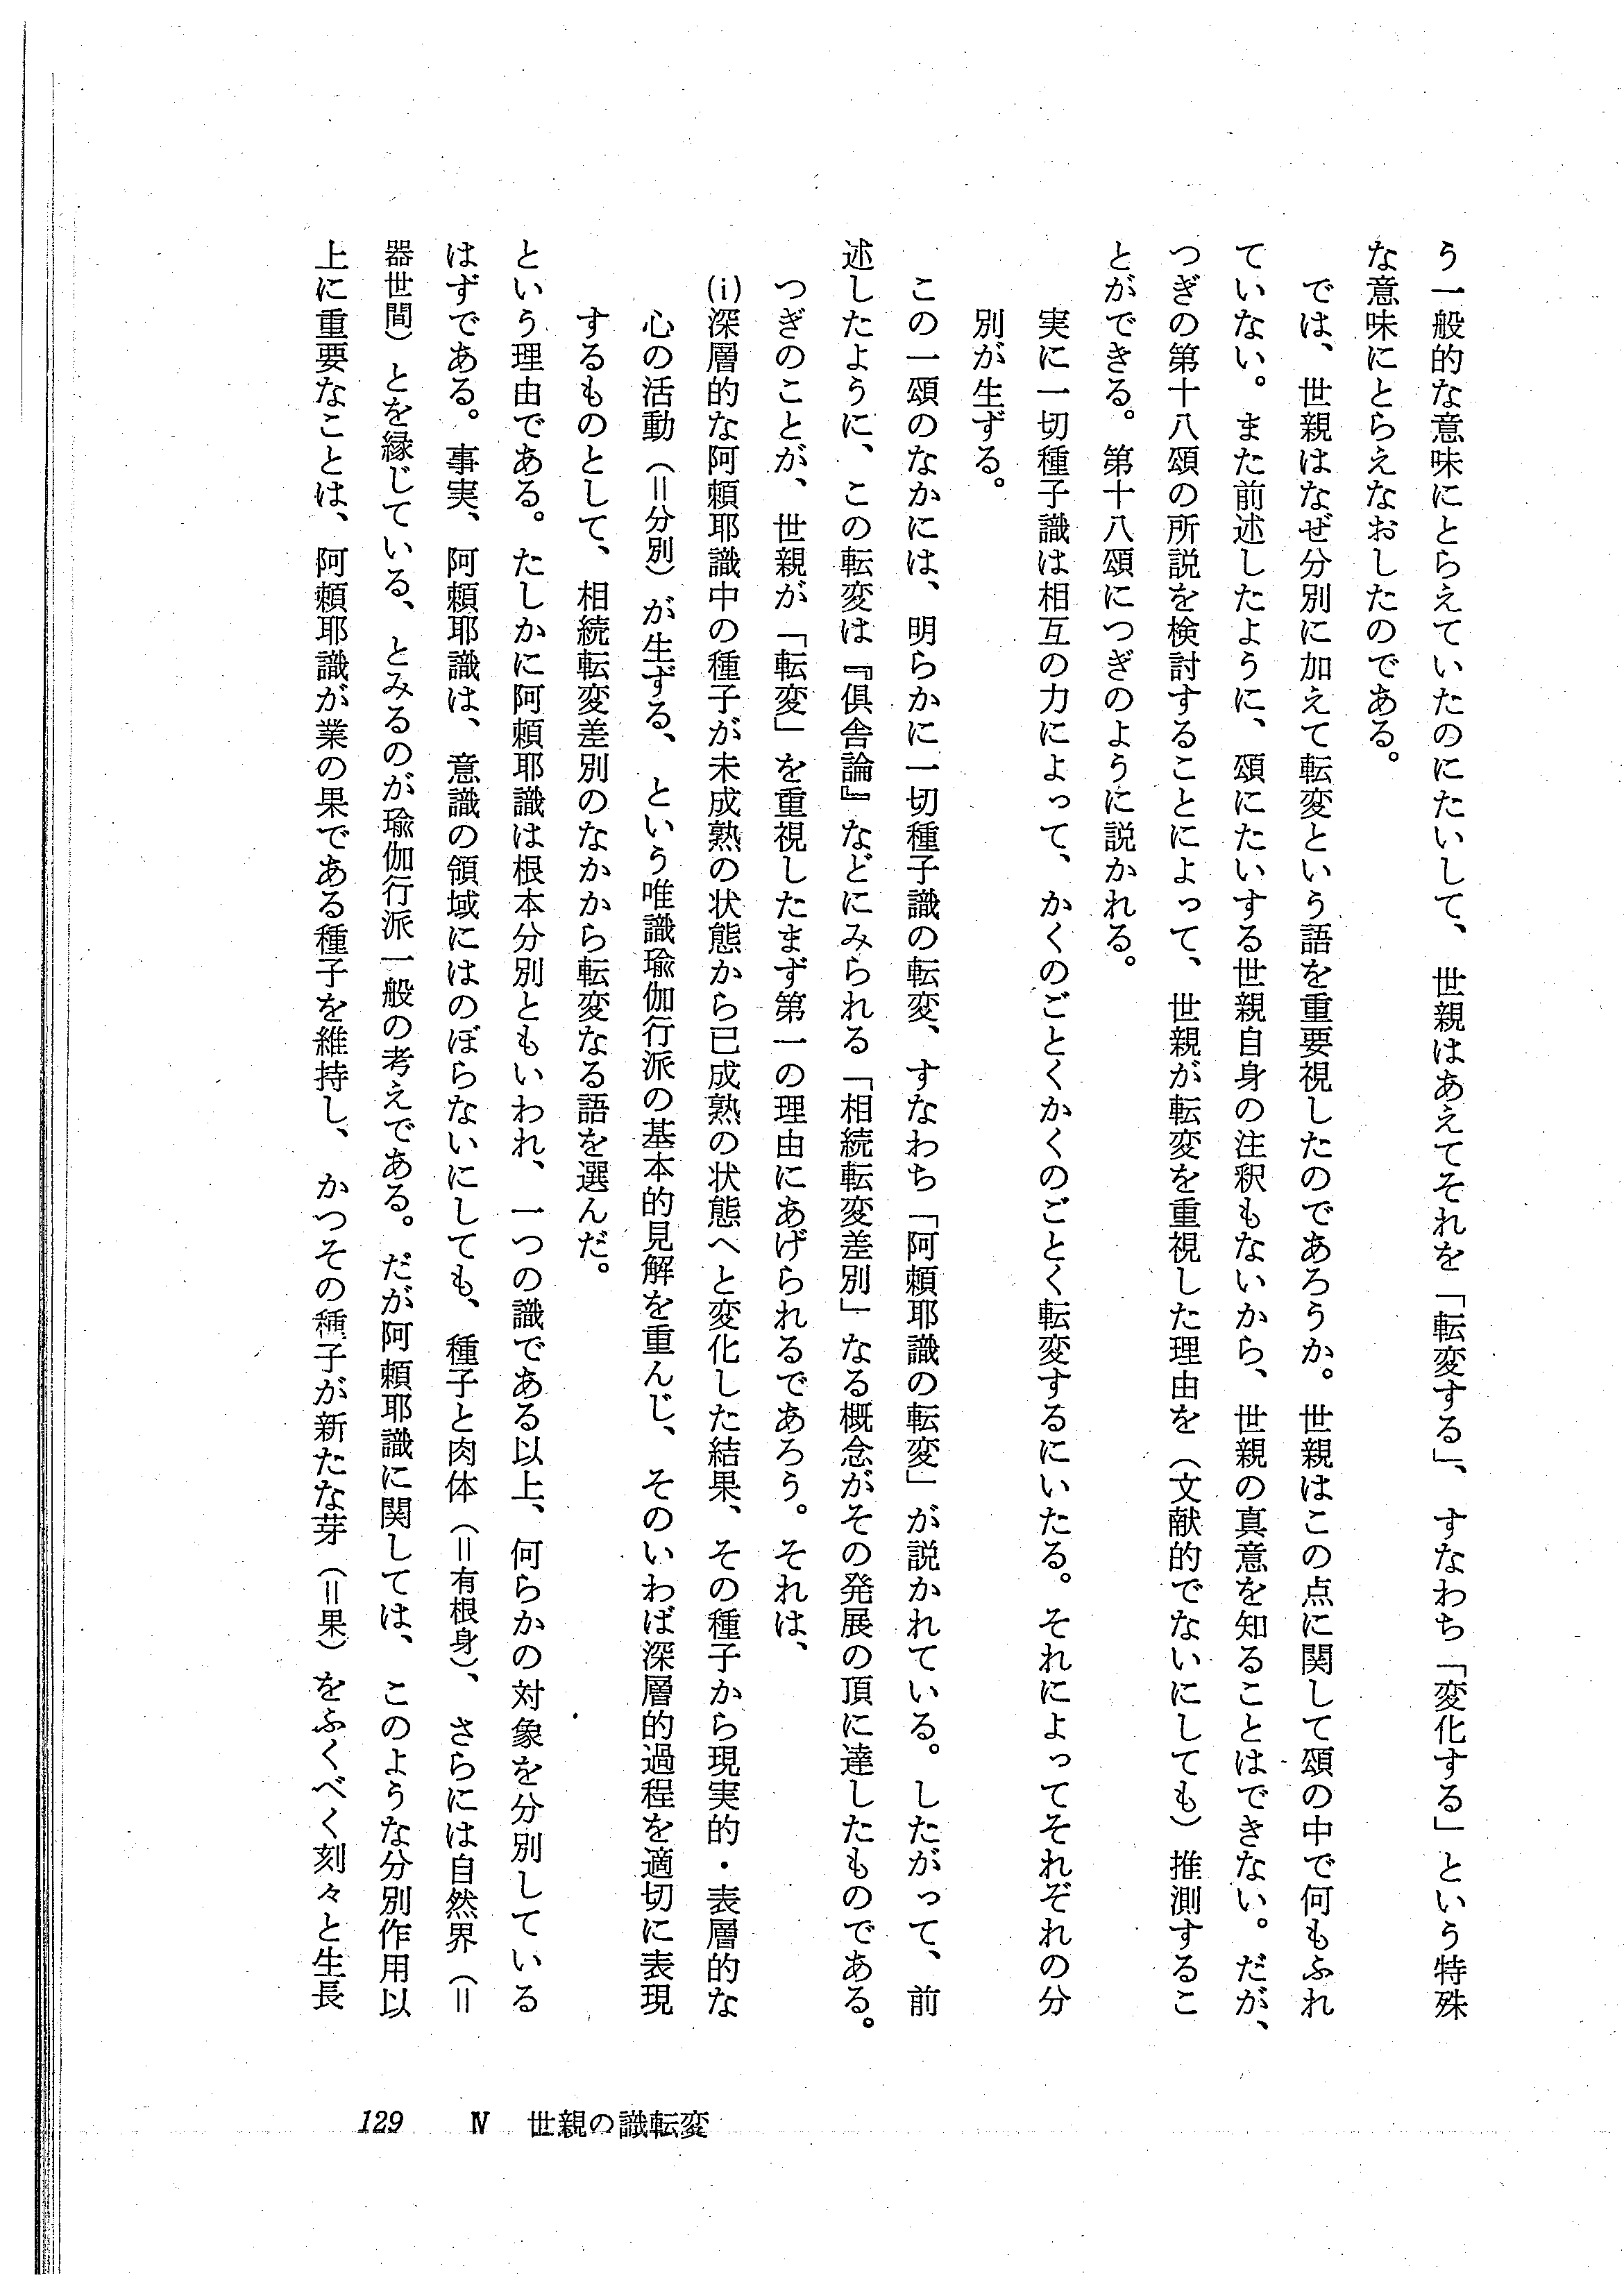 う一般的な意味にとらえていたのにたいして、世親はあえてそれを「転変する」、すなわち「変化する」という特殊
な意味にとらえなおしたのである。
では、世親はなぜ分別に加えて転変という語を重要視したのであろうか。世親はこの点に関して頌の中で何もふれ
ていない。また前述したように、頌にたいする世親自身の注釈もないから、世親の真意を知ることはできない。だが、
つぎの第十八頌の所説を検討することによって、世親が転変を重視した理由を（文献的でないにしても）推測するこ
とができる。第十八頌につぎのように説かれる。
実に一切種子識は相互の力によって、かくのごとくかくのごとく転変するにいたる。それによってそれぞれの分
別が生ずる。
この一頌のなかには、明らかに一切種子識の転変、すなわち「阿頼耶識の転変」が説かれている。したがって、前
述したように、この転変は『倶舎論』などにみられる「相続転変差別」なる概念がその発展の頂に達したものである。
つぎのことが、世親が「転変」を重視したまず第一の理由にあげられるであろう。それは、
(i)深層的な阿頼耶識中の種子が未成熟の状態から已成熟の状態へと変化した結果、その種子から現実的・表層的な
心の活動（＝分別）が生ずる、という唯識瑜伽行派の基本的見解を重んじ、そのいわば深層的過程を適切に表現
するものとして、相続転変差別のなかから転変なる語を選んだ。
という理由である。たしかに阿頼耶識は根本分別ともいわれ、一つの識である以上、何らかの対象を分別している
はずである。事実、阿頼耶識は、意識の領域にはのぼらないにしても、種子と肉体（＝有根身）、さらには自然界（＝
器世間）とを縁じている、とみるのが瑜伽行派一般の考えである。だが阿頼耶識に関しては、このような分別作用以
上に重要なことは、阿頼耶識が業の果である種子を維持し、かつその種子が新たな芽（＝果）をふくべく刻々と生長
129 Ⅳ 世親の識転変